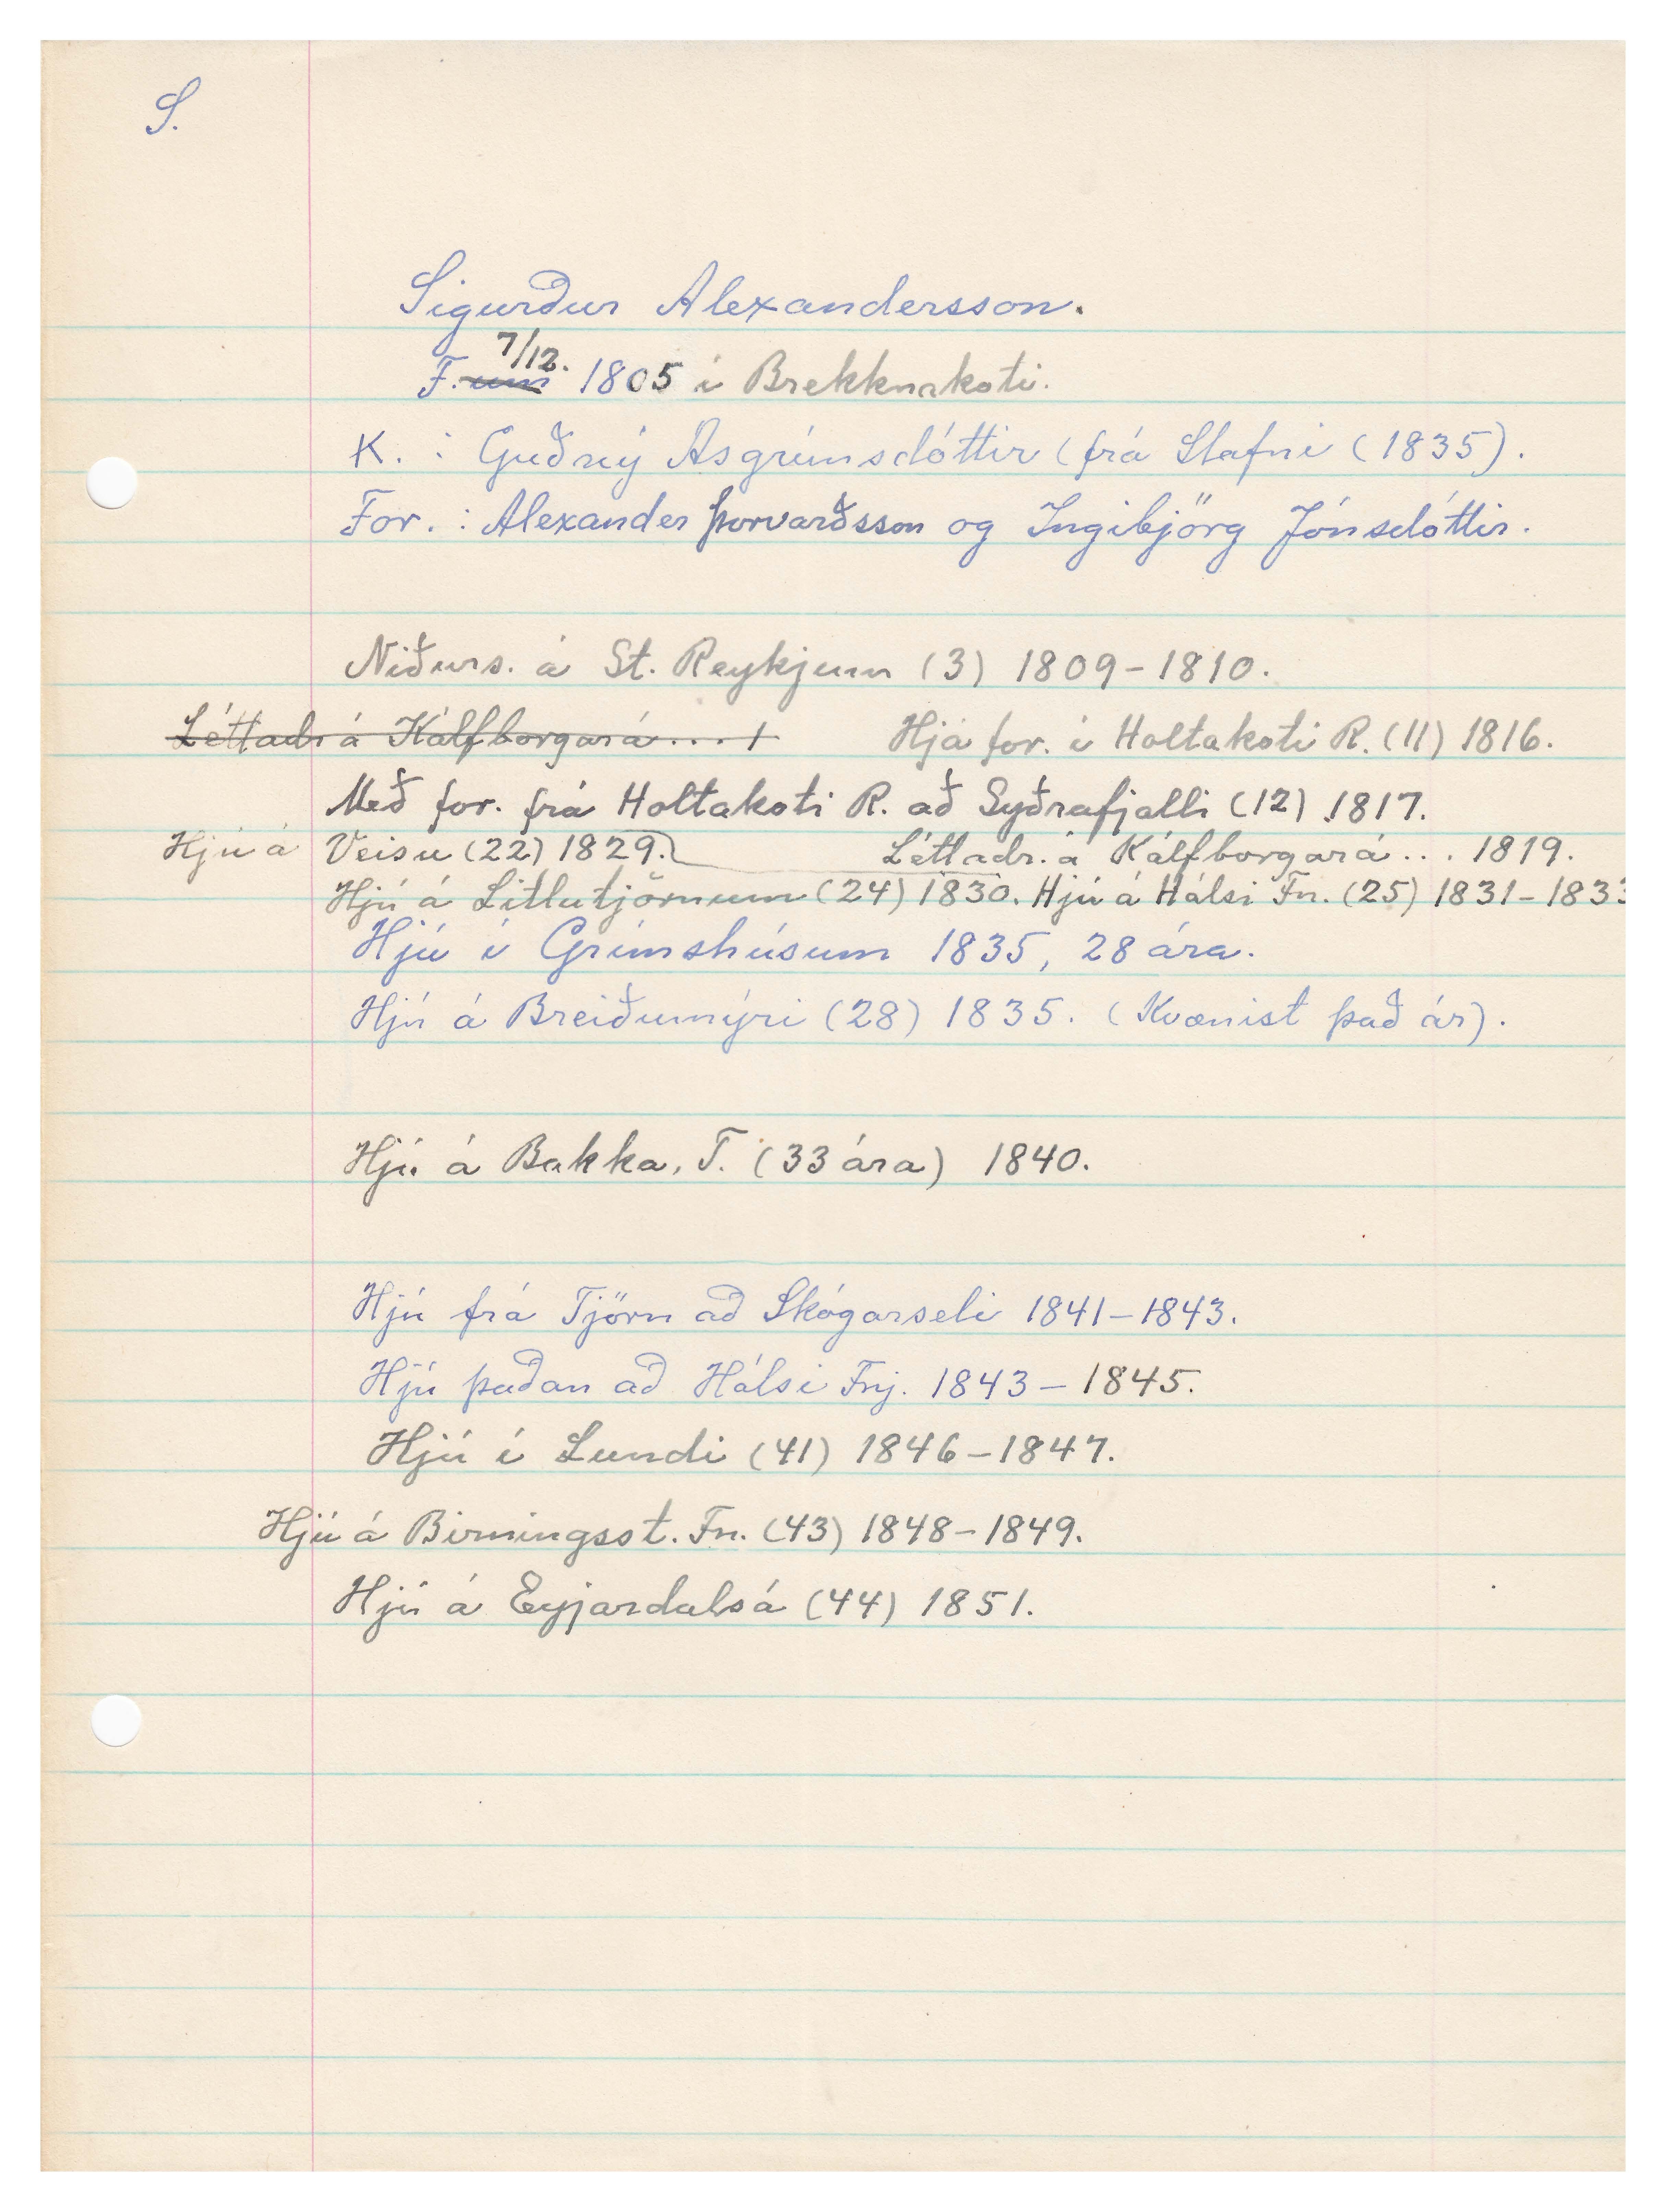 S.
Sigurður Alexandersson.
F. um 7/12. 1805 í Brekknakoti.
K. : Guðný Ásgrímsdóttir (frá Stafni (1835).
For. : Alexander Þorvarðsson og Ingibjörg Jónsdóttir.
Niðurs. á St. Reykjum (3) 1809-1810.
Léttadr á Kálfborgará.... 1 Hjá for. í Holtakoti R. (11) 1816.
Með for. frá Holtakoti R. að Syðrafjalli (12) 1817.
Hjú á Veisu (22) 1829. Léttadr. á Kálfborgará... 1819.
Hjú á Litlutjörnum (24) 1830. Hjú á Hálsi Fn. (25) 1831-1833
Hjú í Grímshúsum 1835, 28 ára.
Hjú á Breiðumýri (28) 1835. (Kvænist það ár).
Hjú á Bakka, T. (33 ára) 1840.
Hjú frá Tjörn að Skógarseli 1841-1843.
Hjú þaðan að Hálsi Fnj. 1843-1845.
Hjú í Lundi (41) 1846-1847.
Hjú á Birningsst. Fn. (43) 1848-1849.
Hjú á Eyjardalsá (44) 1851.